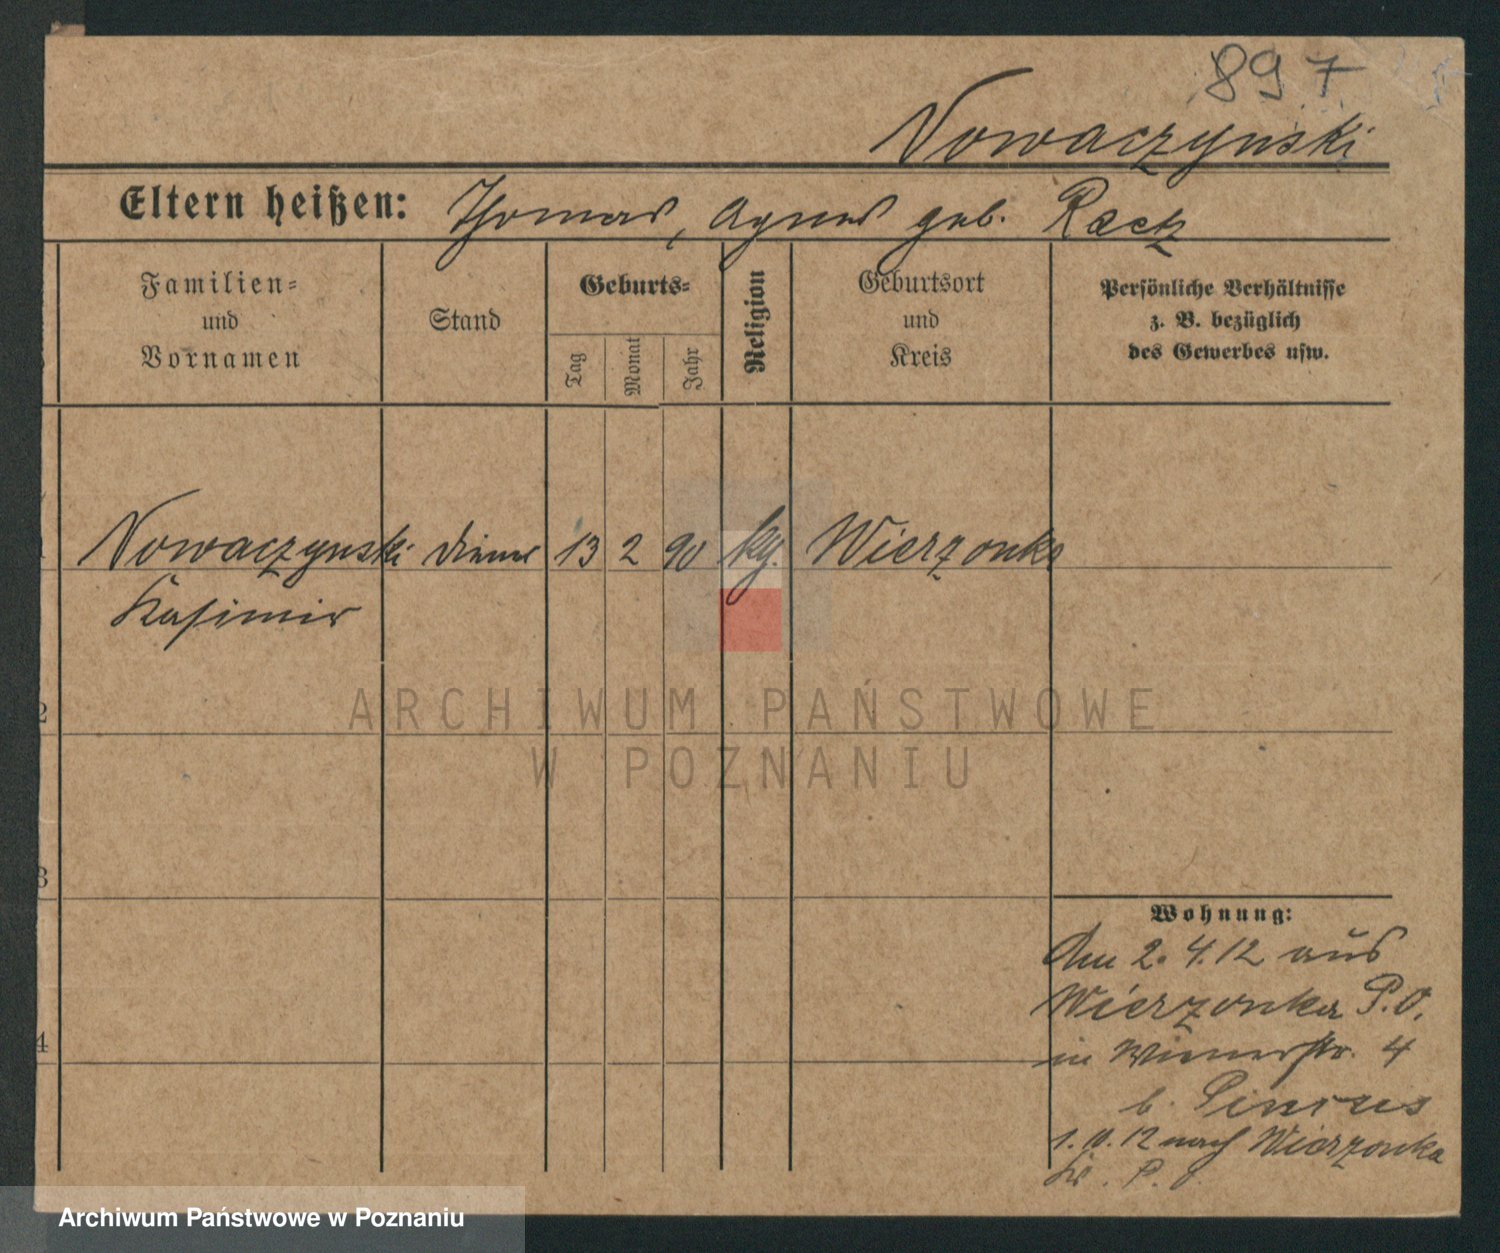 897
Nowaczynski
Eltern heißen: Thomas, Agnes geb. Ratz
Familien=
und
Vornamen
Stand
Geburts=
Tag
Monat
Jahr
Religion
Geburtsort
und
Kreis
Persönliche Verhältnisse
z. B. bezüglich
des Gewerbes usw.
Nowaczynski Diener 13 2 90 kg. Wierzonka
Kasimir
2
3
4
Wohnung:
Am 2.4.12 aus
Wierzonka P.O.
in Wienerstr. 4
b. Pincus
12 nach Wierzonka
Kr. P.
ARCHIWUM PAŃSTWOWE
W POZNANIU
Archiwum Państwowe w Poznaniu